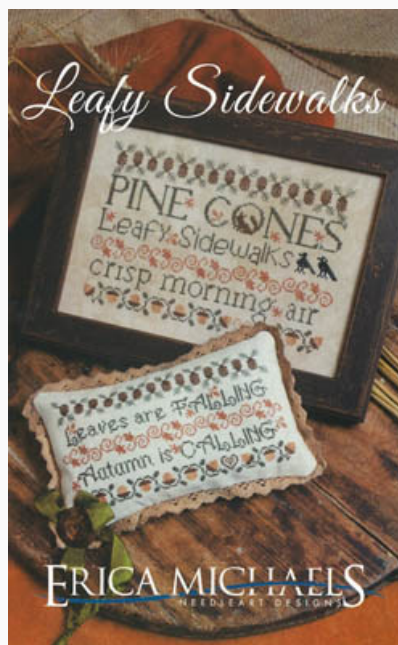 Leafy Sidewalks
PINE CONES
Leafy Sidewalks
crisp morning air
Leaves are FALLING
Autumn is CALLING
ERICA MICHAELS
NEEDLEART DESIGNS